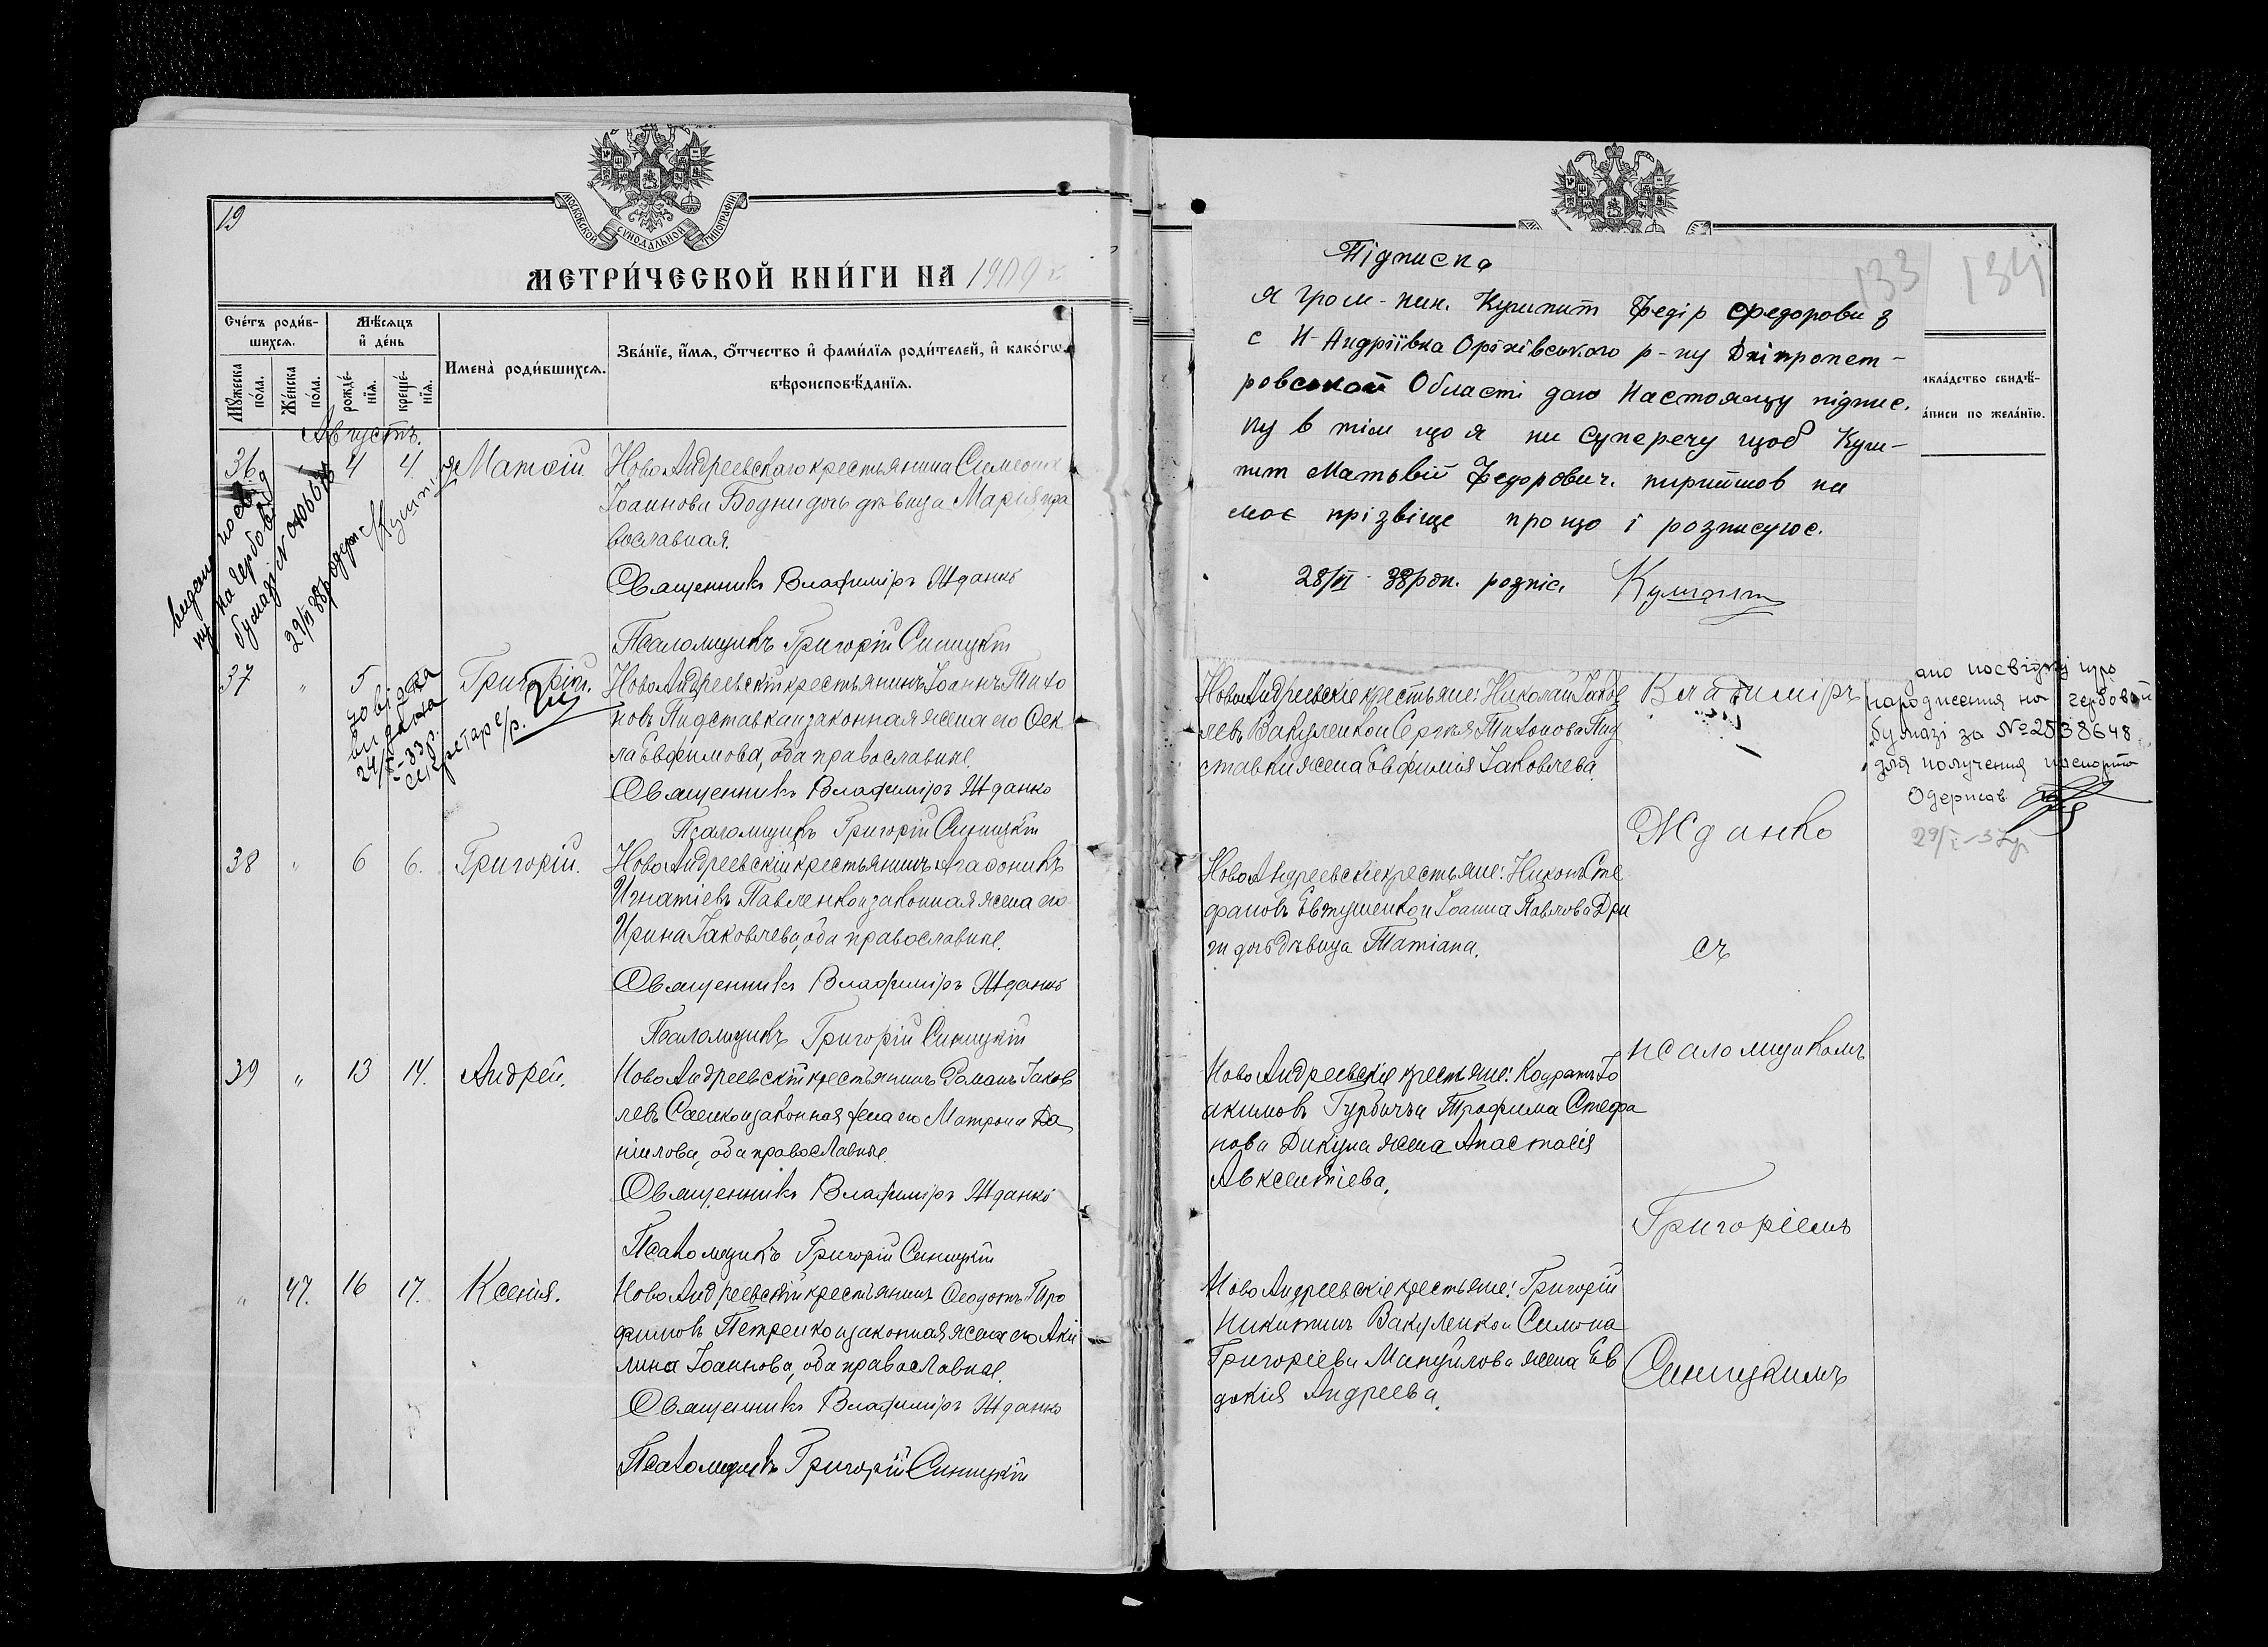 19
МОСКОВСКОЙ СУНОДАЛЬНОЙ ТИПОГРАФІИ
МЕТРИ́ЧЕСКОЙ КНИ́ГИ НА 1909 г.
Сче́тъ роди́в-
шихсѧ.
Мѣ́сѧцъ
и҆ де́нь
Мꙋ́жеска по́ла.
Же́нска по́ла.
рожде́-
нїѧ.
креще́-
нїѧ.
Имена̀ роди́вшихсѧ.
Зва́нїе, и҆́мѧ, ѻ҆́тчество и҆ фами́лїѧ роди́телей, и҆ како́гѡ
вѣроисповѣ́данїѧ.
Августъ.
36. 4 4. Матѳій
НовоАндреевскаго крестьянина Симеона
Іоаннова Бодни дочь дѣвица Марія, пра
вославная.
Священникъ Владиміръ Жданко
Псаломщикъ Григорій Синицкій
видано
на гербовій
бумазі №
29/VI 38р. одерж.
37 " 5 Григорій.
НовоАндреевскій крестьянинъ Іоаннъ Тихо
новъ Пидставка и законная жена его Ѳек
ла Евфимова, оба православные.
Священникъ Владиміръ Жданко
Псаломщикъ Григорій Синицкій
довідка
видана
24/X-33р.
секретар с/р.
38 " 6 6. Григорій.
НовоАндреевскій крестьянинъ Агаѳоникъ
Игнатіевъ Павленко и законная жена его
Ирина Іаковлева, оба православные.
Священникъ Владиміръ Жданко
Псаломщикъ Григорій Синицкій
39 " 13 14. Андрей.
НовоАндреевскій крестьянинъ Романъ Іаков
левъ Саенко и законная жена его Матрона Да
ніилова, оба православные.
Священникъ Владиміръ Жданко
Псаломщикъ Григорій Синицкій
" 47. 16 17. Ксенія.
НовоАндреевскій крестьянинъ Ѳеодотъ Тро
фимовъ Петренко и законная жена его Аки
лина Іоаннова, оба православные.
Священникъ Владиміръ Жданко
Псаломщикъ Григорій Синицкій
133
134
Підписка
я гром-нин. Кушпит Федір Федорови з
с Н-Андріївка Оріхівського р-ну Дніпропет-
ровської Області даю настоящу підпис.
ку в тім що я ни суперечу щоб Куш-
пит Матьвій Федорович. пирийшов на
моє прізвіще про що і розписуюс.
28/VI-38рок. розпіс. Кушпит
икла́дство свидѣ́-
а́писи по жела́нїю.
НовоАндреевскіе крестьяне: Николай Іаков
левъ Вакуленко и Сергія Тихонова Пид
ставки жена Евфимія Іаковлева.
НовоАндреевскіе крестьяне: Никонъ Сте
фановъ Евтушенко и Іоанна Павлова Дри
ги дочь дѣвица Татіана.
НовоАндреевскіе крестьяне: Кодратъ Іо
акимовъ Гурбичъ и Трофима Стефа
нова Дикуна жена Анастасія
Авксентіева.
НовоАндреевскіе крестьяне: Григорій
Никитинъ Вакуленко и Симона
Григоріева Мануйлова жена Ев
докія Андреева.
Владиміръ
Жданко
съ
псаломщикомъ
Григоріемъ
Синицкимъ
дано посвідку про
народження на гербовой
бумазі за №2538648
для получения паспорта
Одержав
29/I-37р